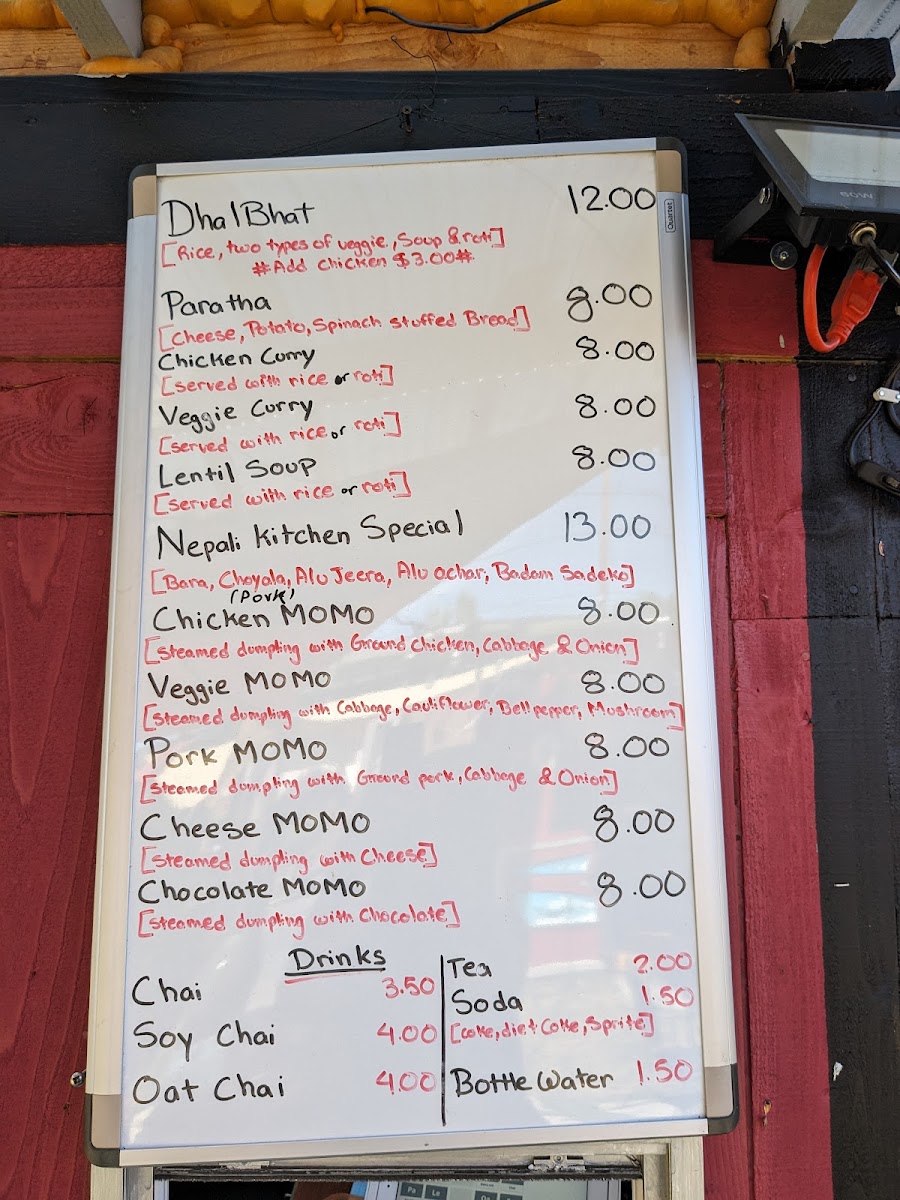 DhalBhat 12.00
[Rice, two types of veggie, Soup & roti]
#Add chicken $3.00#
Paratha 8.00
[Cheese, Potato, Spinach stuffed Bread]
Chicken Curry 8.00
[served with rice or roti]
Veggie Curry 8.00
[served with rice or roti]
Lentil Soup 8.00
[served with rice or roti]
Nepali Kitchen Special 13.00
[Bara, Choyala, Alu Jeera, Alu achar, Badam Sadeko]
(Pork)
Chicken MOMO 8.00
[Steamed dumpling with Ground Chicken, Cabbage & Onion]
Veggie MOMO 8.00
[steamed dumpling with Cabbage, Cauliflower, Bell pepper, Mushroom]
Pork MOMO 8.00
[steamed dumpling with Ground pork, Cabbage & Onion]
Cheese MOMO 8.00
[steamed dumpling with Cheese]
Chocolate MOMO 8.00
[steamed dumpling with Chocolate]
Drinks
Chai 3.50
Soy Chai 4.00
Oat Chai 4.00
Tea 2.00
Soda 1.50
[Coke, diet Coke, Sprite]
Bottle Water 1.50
Quartet
50W